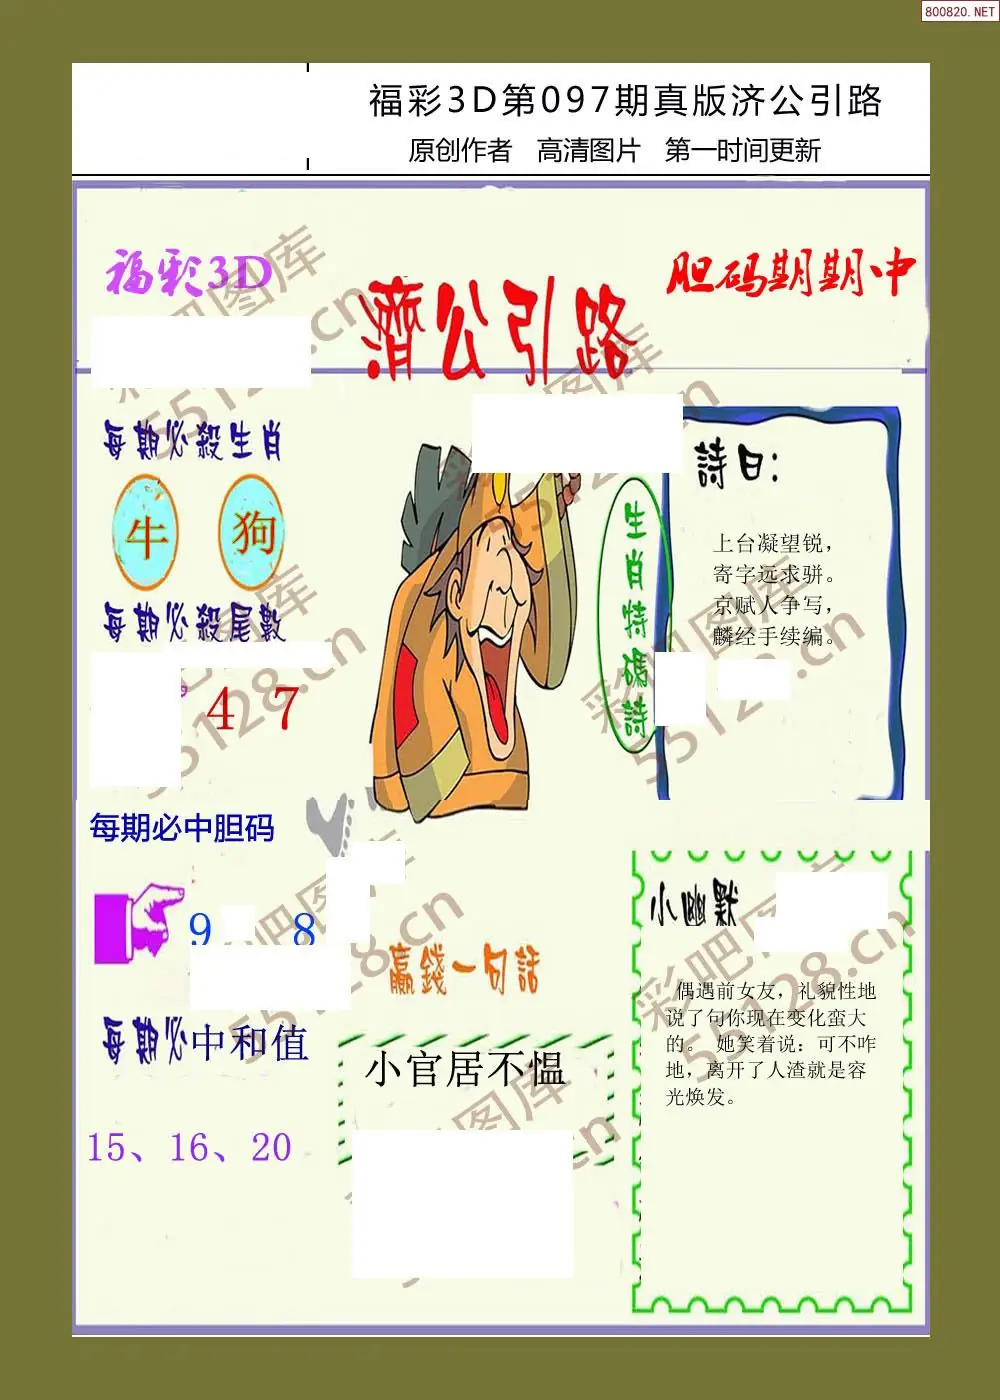 800820.NET
福彩3D第097期真版济公引路
原创作者 高清图片 第一时间更新
福彩3D
濟公引路
胆码期期中
每期必殺生肖
牛 狗
每期必殺尾數
4 7
生肖特碼詩
詩曰：
上台凝望锐，
寄字远求骈。
京赋人争写，
麟经手续编。
每期必中胆码
9 8
每期必中和值
15、16、20
赢錢一句話
小官居不愠
小幽默
偶遇前女友，礼貌性地
说了句你现在变化蛮大
的。 她笑着说：可不咋
地，离开了人渣就是容
光焕发。
彩吧图库
55128.cn
彩吧图库
55128.cn
彩吧图库
55128.cn